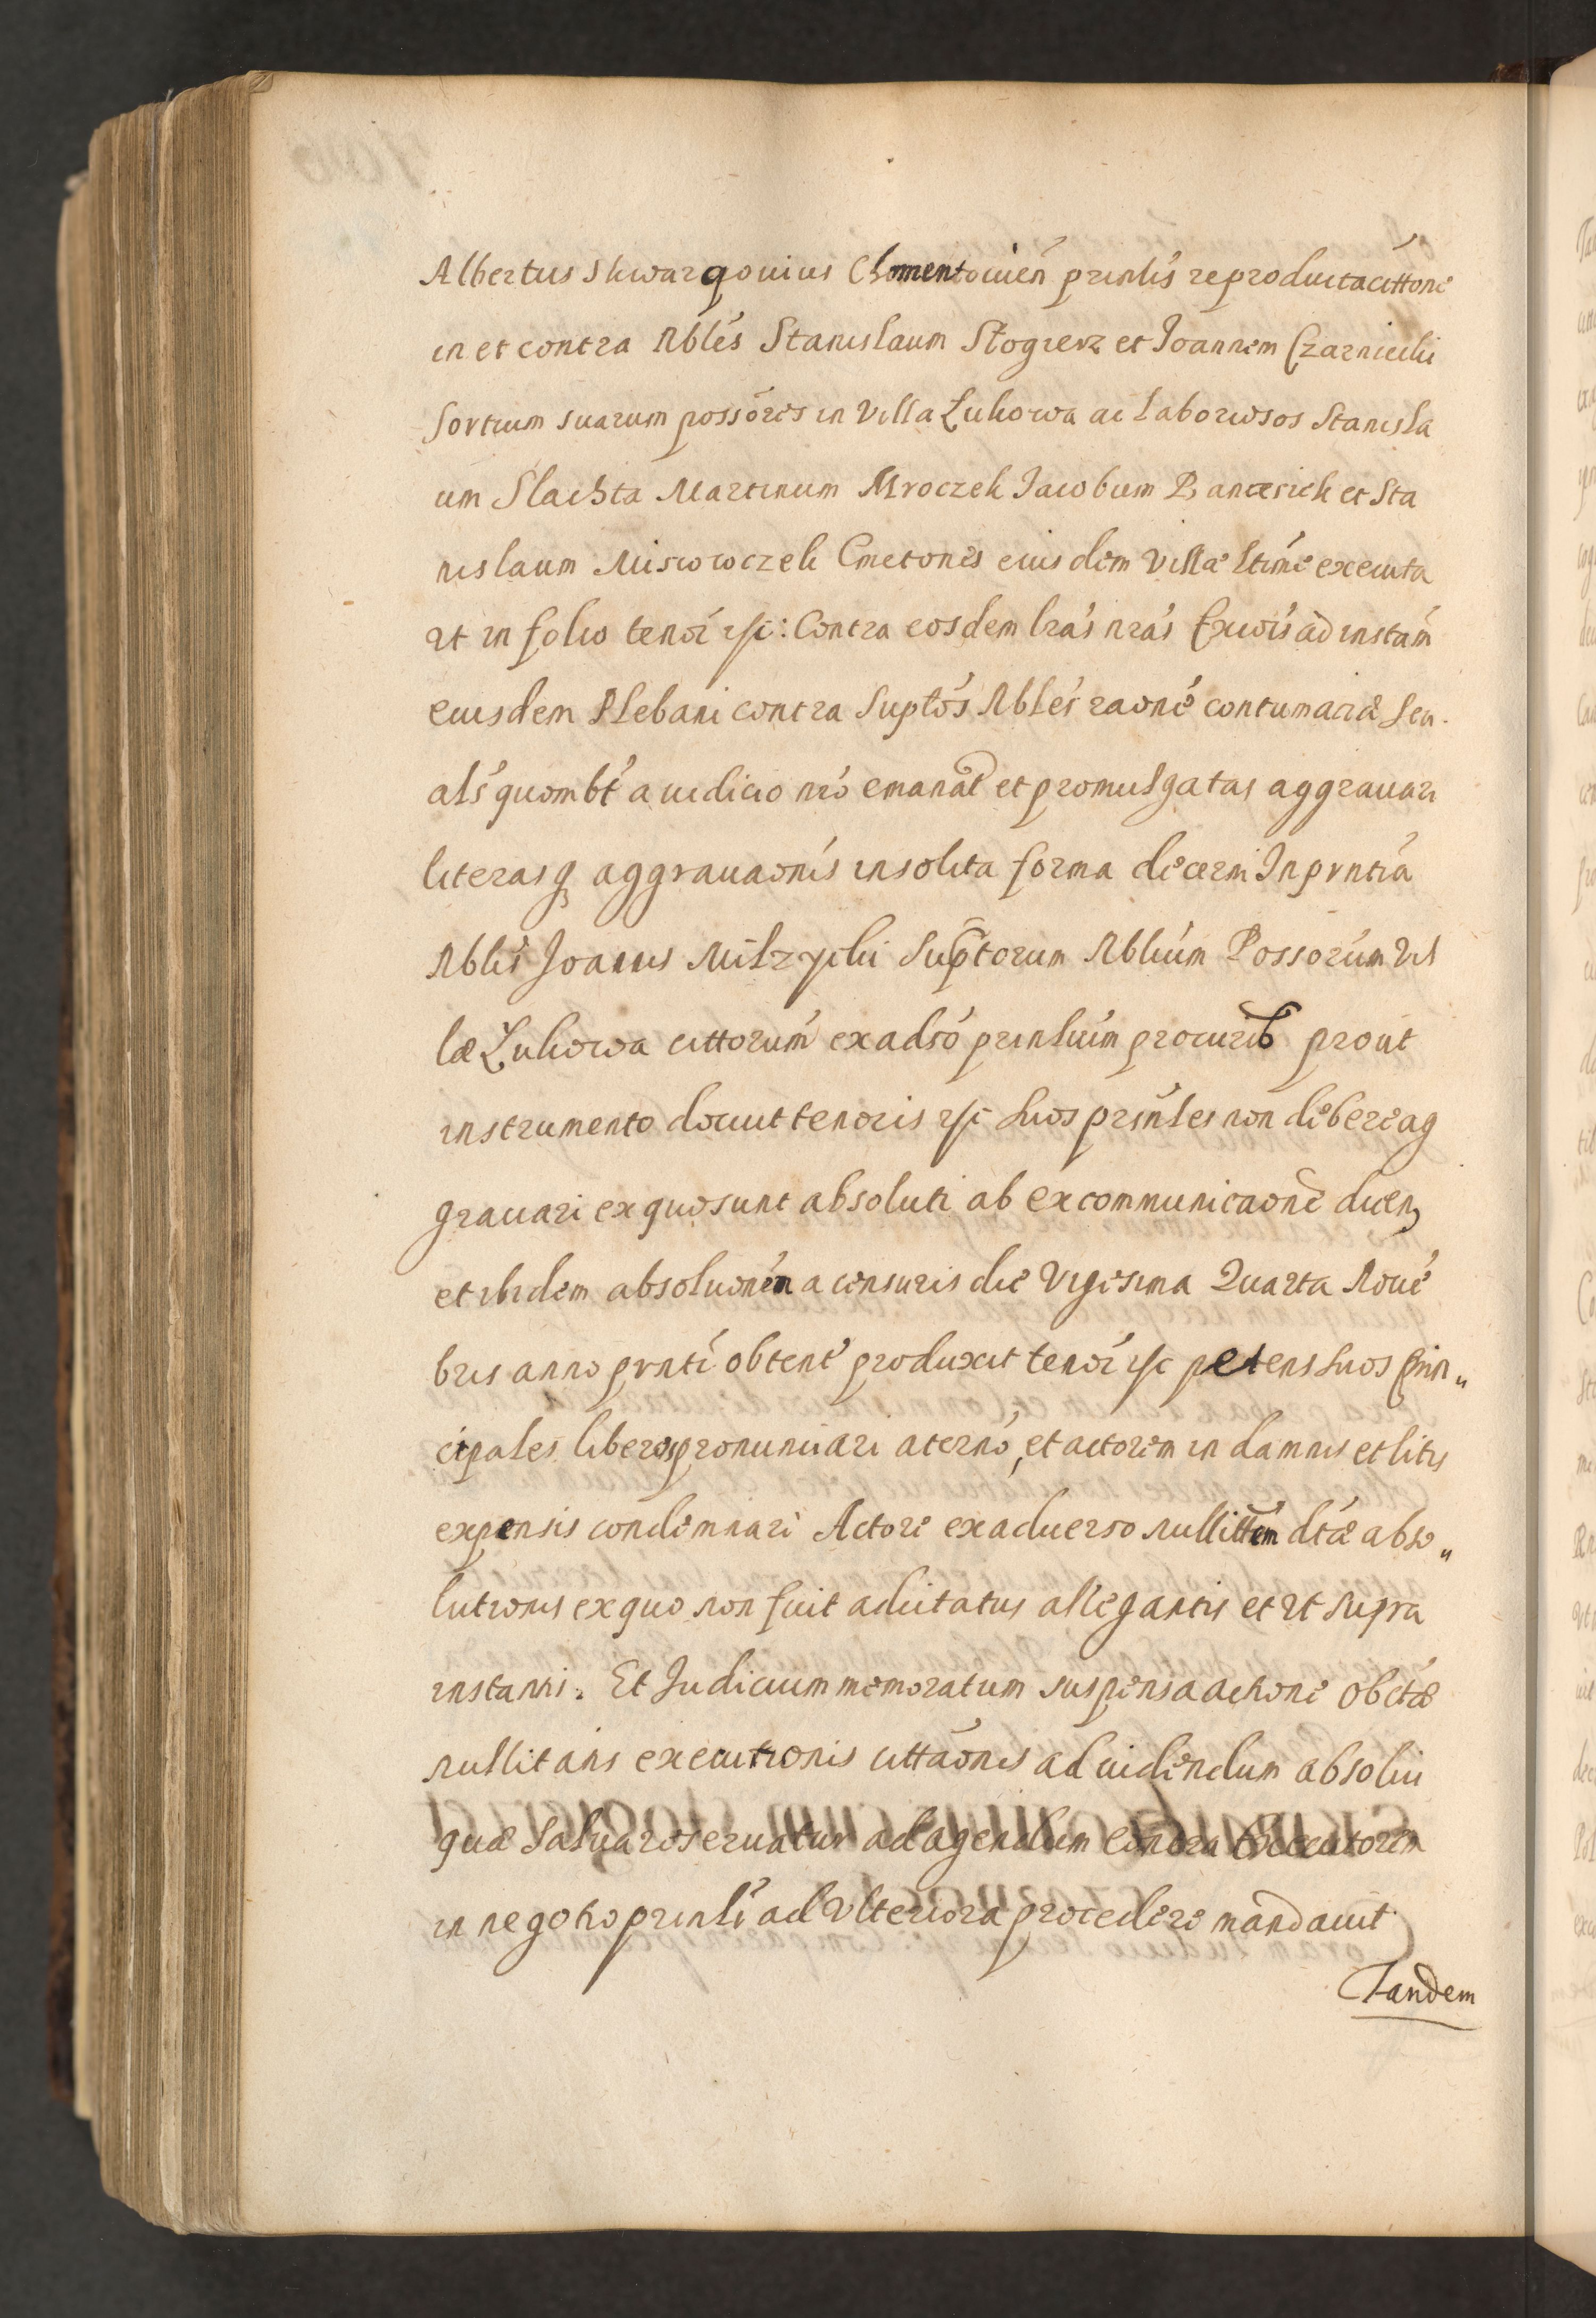 Albertus Skwargouius Clomentouien̄ prinlis reproducta cittone
in et contra Nbles Stanislaum Stogierz et Joannem Czarniecki
Sortium suarum possores in Villa Łukowa ac Laboriosos Stanisla
um Slachta Martinum Mroczek Jacobum Bancerich et Sta
nislaum Miscwoczek Cmetones eiusdem Villæ ltime executa
ut in folio tenor etc: Contra eosdem lras nras Excois ad instam
eiusdem Plebani contra Suptos Nbles raone contumaciæ seu
als quombt a iudicio nro emanat et promulgatas aggrauari
literasq aggrauaonis insolita forma decerni In prntia
Nblis Joannis Milzycki Suptorum Nblium Possorum Vil
læ Łukowa cittorum ex adso prinlium procuris prout
instrumento docuit tenoris etc suos prinles non debere ag
grauari ex quo sunt absoluti ab excommunicaone dicen
et ibidem absoluonem a censuris die Vigesima Quarta Noue
bris anno prnti obtent produxit tenor etc petens suos Prin„
cipales liberos pronunciari a termo, et actorem in damnis et litis
expensis condemnari Actore ex aduerso nullittem dtæ abso„
lutionis ex quo non fuit adcitatus allegantis et ut supra
instantis. Et Judicium memoratum suspensa actione obctæ
nullitatis executionis cittaonis ad uidendum absolui
quæ salua reseruatur ad agendum contra Executorem
in negotio prinli ad Vlteriora procedere mandauit
Tandem